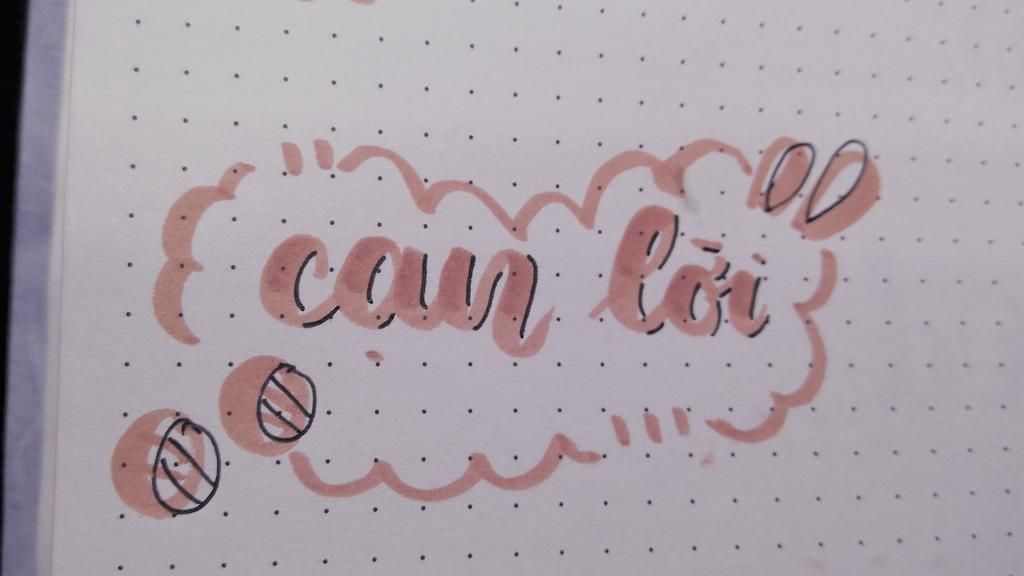 cạn lời